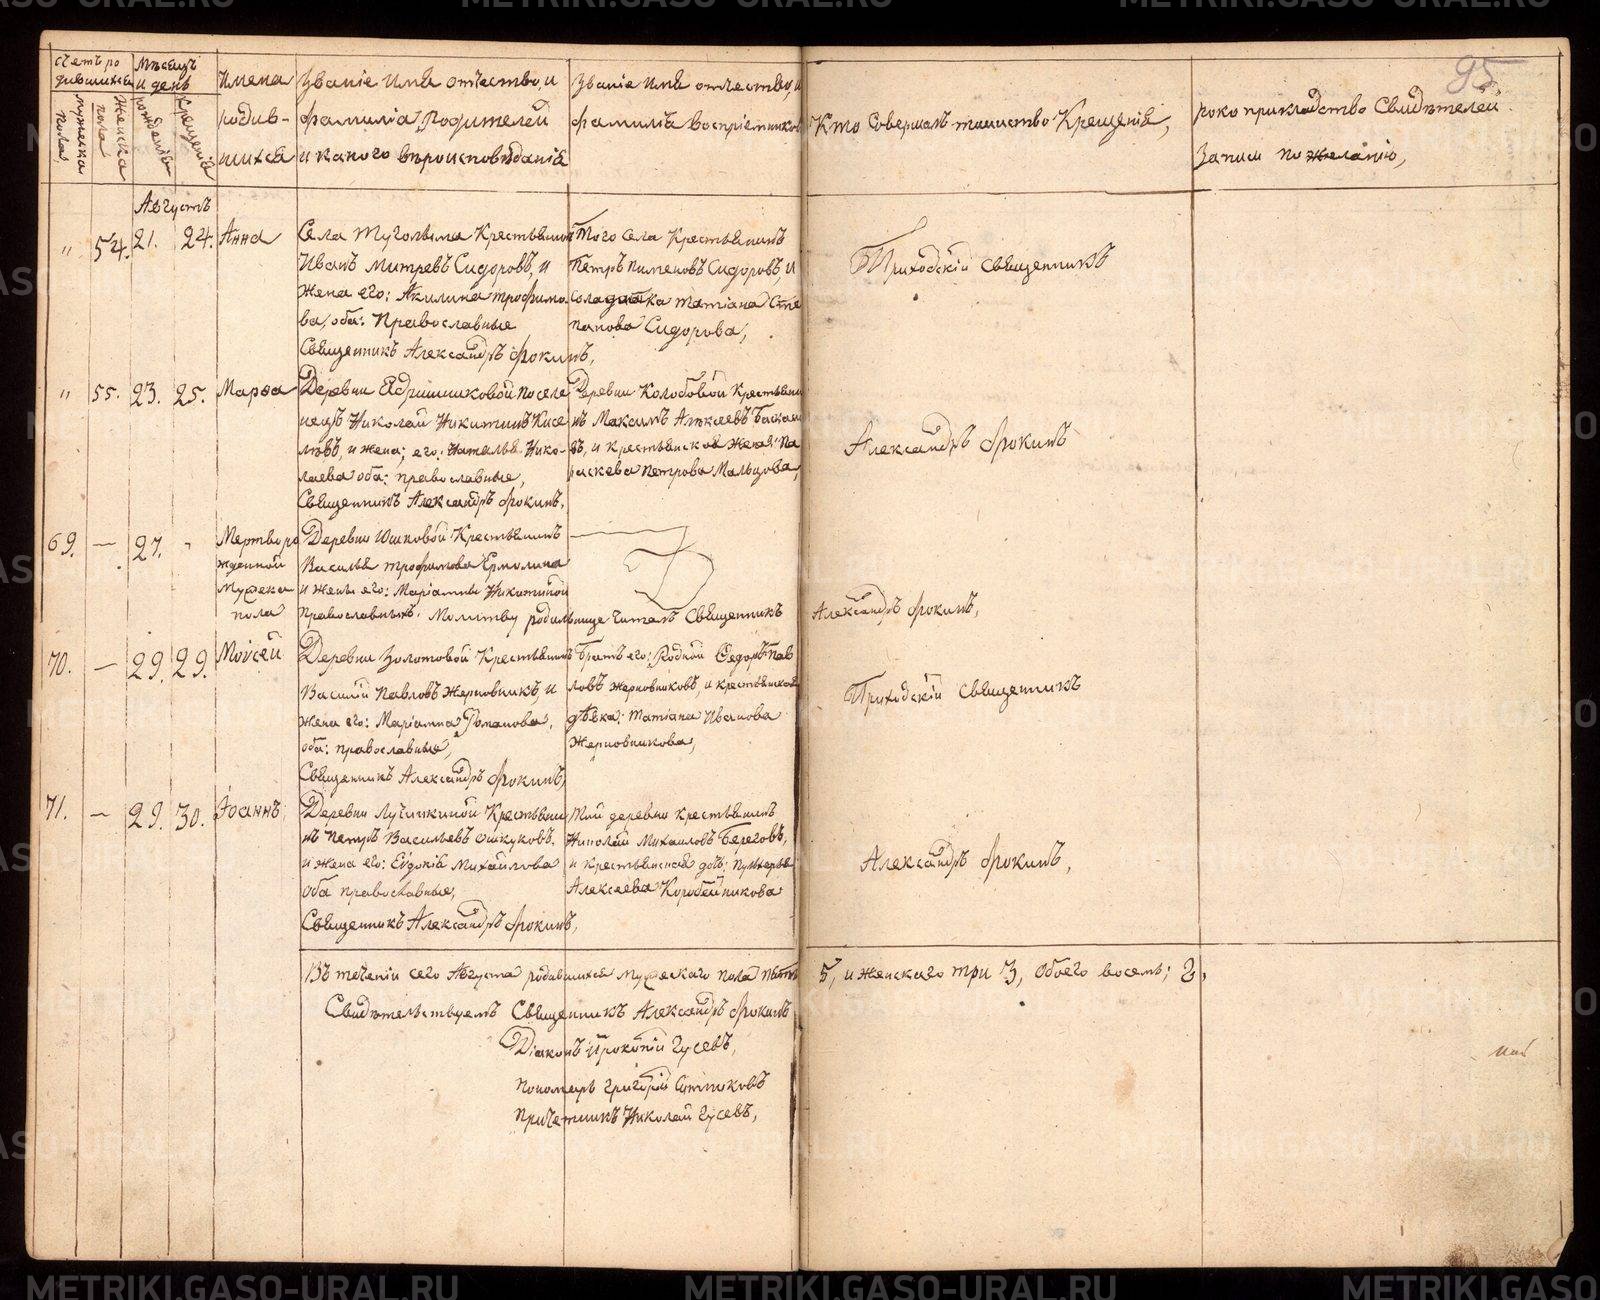 METRIKI.GASO-URAL.RU
95
Счетъ ро
дившихся
мужеска
пола,
Женска
пола
Мѣсяцъ
и день
рожденія
Крещенія
Имена
родив-
шихся
Званіе Имя отчество, и
фамилія Родителей
и какого вѣроисповѣданія
Званіе Имя отчество, и
фамилія воспріемниковъ
Кто Совершалъ таинство Крещенія,
рукоприкладство Свидѣтелей
Записи по желанію,
Августъ
" 54. 21. 24. Анна
Села Туголыма Крестьянинъ
Иванъ Митревъ Сидоровъ, и
Жена его: Акилина трофимо-
ва, оба: Православные
Священникъ Александръ Фокинъ,
Того Села Крестьянинъ
Петръ Пименовъ Сидоровъ, и
Солдатка татіана Сте
панова Сидорова,
Приходскій Священникъ
" 55. 23. 25. Марѳа
Деревни Ядришниковой Поселе
нецъ Николай Никитинъ Кисе
левъ, и жена; его: Наталья Нико-
лаева оба: православные,
Священникъ Александръ Фокинъ,
Деревни Колобовой Крестьяни
нъ Максимъ
и крестьянская Жена: Па
раскева Петрова Мальцова,
Александръ Фокинъ
69. — 27. "
Мертворо
жденной
Мужеска
пола
Деревни Юшковой Крестьянинъ
Василья трофимова Ермолина
и жены его: Маріанны Никитиной
Православныхъ. Молитву родильнице читалъ Священникъ
Александръ Фокинъ,
70. — 29. 29. Моѵсей
Деревни Золотовой Крестьянинъ
Василій Павловъ Жерновниковъ, и
Жена его: Маріанна Романова,
оба: православные,
Священникъ Александръ Фокинъ,
Братъ его: Родной Ѳедоръ Пав
ловъ Жерновниковъ, и крестьянская
дѣвка: татіана Иванова
Жерновникова,
Приходскій Священникъ
71. — 29. 30. Іоаннъ
Деревни Лучинкиной Крестьяни
нъ Петръ Васильевъ Ошкуковъ,
и жена его: Евдокія Михайлова
Оба православные,
Священникъ Александръ Фокинъ,
Той деревни крестьянинъ
Николай Михаиловъ Береговъ,
и Крестьянская дочь: Пульхерья
Алексеева Коробейникова
Александръ Фокинъ,
Въ теченіи сего Августа родившихся Мужескаго пола пять 5, и женскаго три 3, Обоего восемь; 8,
Свидѣтельствуемъ Священникъ Александръ Фокинъ
Діаконъ Прокопій Гусевъ,
Пономарь Григорій Сотниковъ
Причетникъ Николай Гусевъ,